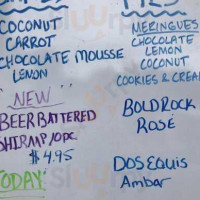 COCONUT
CARROT
CHOCOLATE MOUSSE
LEMON
"NEW"
BEER BATTERED
SHRIMP/10PC
$4.95
TODAY:
PIES
MERINGUES
CHOCOLATE
LEMON
COCONUT
COOKIES & CREAM
BOLD ROCK
ROSÉ
DOS EQUIS
Ambar